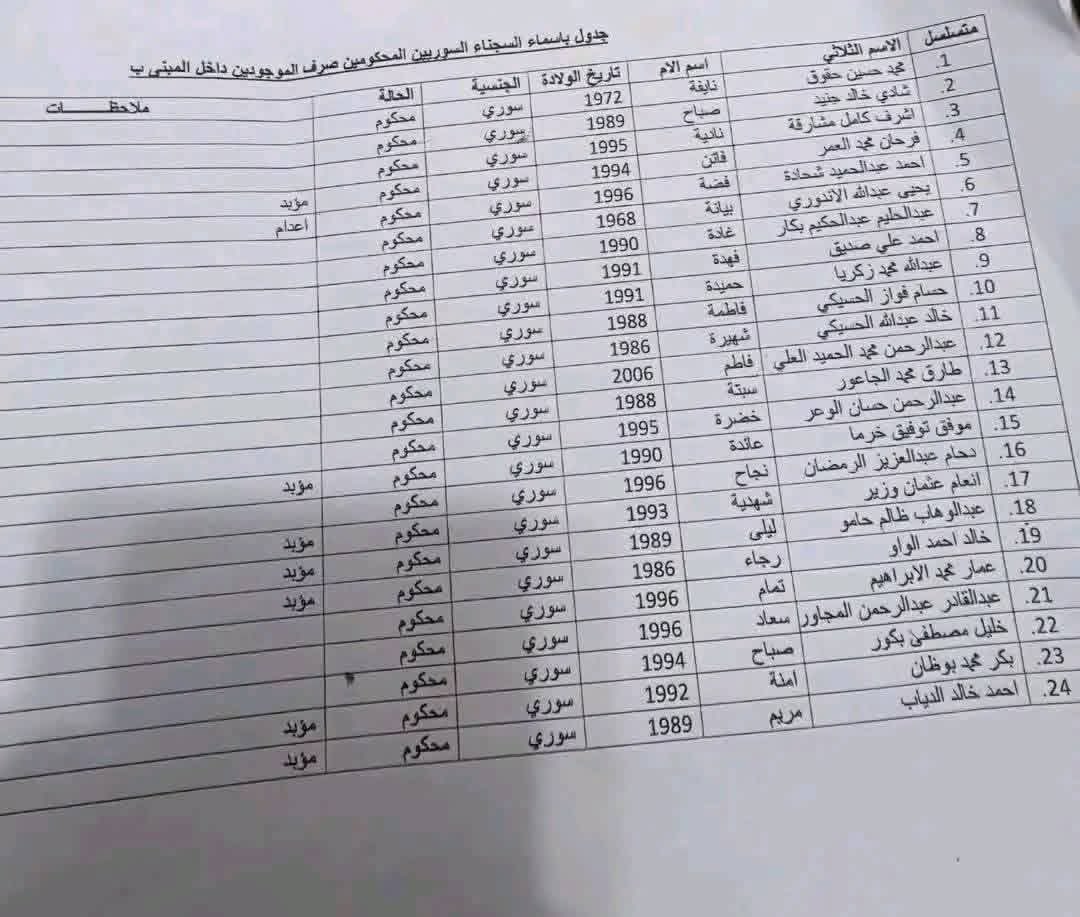 جدول باسماء السجناء السوريين المحكومين صرف الموجودين داخل المبنى ب
متسلسل الاسم الثلاثي اسم الام تاريخ الولادة الجنسية الحالة ملاحظـــــــات
1. محمد حسين حقوق نايفة 1972 سوري محكوم
2. شادي خالد جنيد صباح 1989 سوري محكوم
3. اشرف كامل مشارقة نادية 1995 سوري محكوم
4. فرحان محمد العمر فاتن 1994 سوري محكوم مؤبد
5. احمد عبدالحميد شحادة فضة 1996 سوري محكوم اعدام
6. يحيى عبدالله الاندوري بيانة 1968 سوري محكوم
7. عبدالحليم عبدالحكيم بكار غادة 1990 سوري محكوم
8. احمد علي صديق فهدة 1991 سوري محكوم
9. عبدالله محمد زكريا حميدة 1991 سوري محكوم
10. حسام فواز الحسيكي فاطمة 1988 سوري محكوم
11. خالد عبدالله الحسيكي شهيرة 1986 سوري محكوم
12. عبدالرحمن محمد الحميد العلي فاطم 2006 سوري محكوم
13. طارق محمد الجاعور سبتة 1988 سوري محكوم
14. عبدالرحمن حسان الوعر خضرة 1995 سوري محكوم
15. موفق توفيق خرما عائدة 1990 سوري محكوم مؤبد
16. دحام عبدالعزيز الرمضان نجاح 1996 سوري محكوم
17. انعام عثمان وزير شهدية 1993 سوري محكوم مؤبد
18. عبدالوهاب ظالم حامو ليلى 1989 سوري محكوم مؤبد
19. خالد احمد الواو رجاء 1986 سوري محكوم مؤبد
20. عمار محمد الابراهيم تمام 1996 سوري محكوم
21. عبدالقادر عبدالرحمن المجاور سعاد 1996 سوري محكوم
22. خليل مصطفى بكور صباح 1994 سوري محكوم
23. بكر محمد بوظان امنة 1992 سوري محكوم مؤبد
24. احمد خالد الدياب مريم 1989 سوري محكوم مؤبد